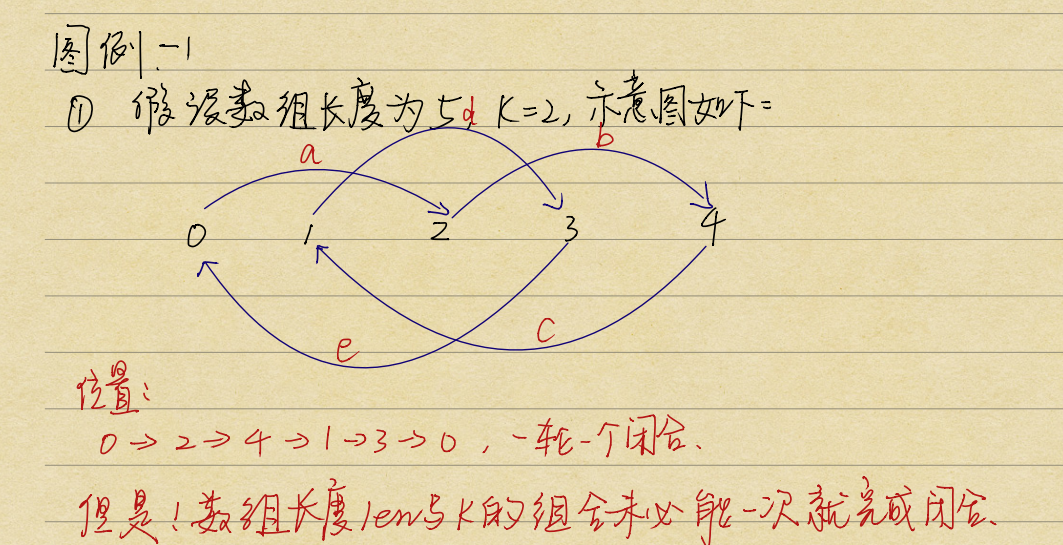 图例-1
① 假设数组长度为5, K=2, 示意图如下:
a d b
0 1 2 3 4
e c
位置:
0→2→4→1→3→0, 一轮一个闭合、
但是!数组长度len与K的组合未必能一次就完成闭合、